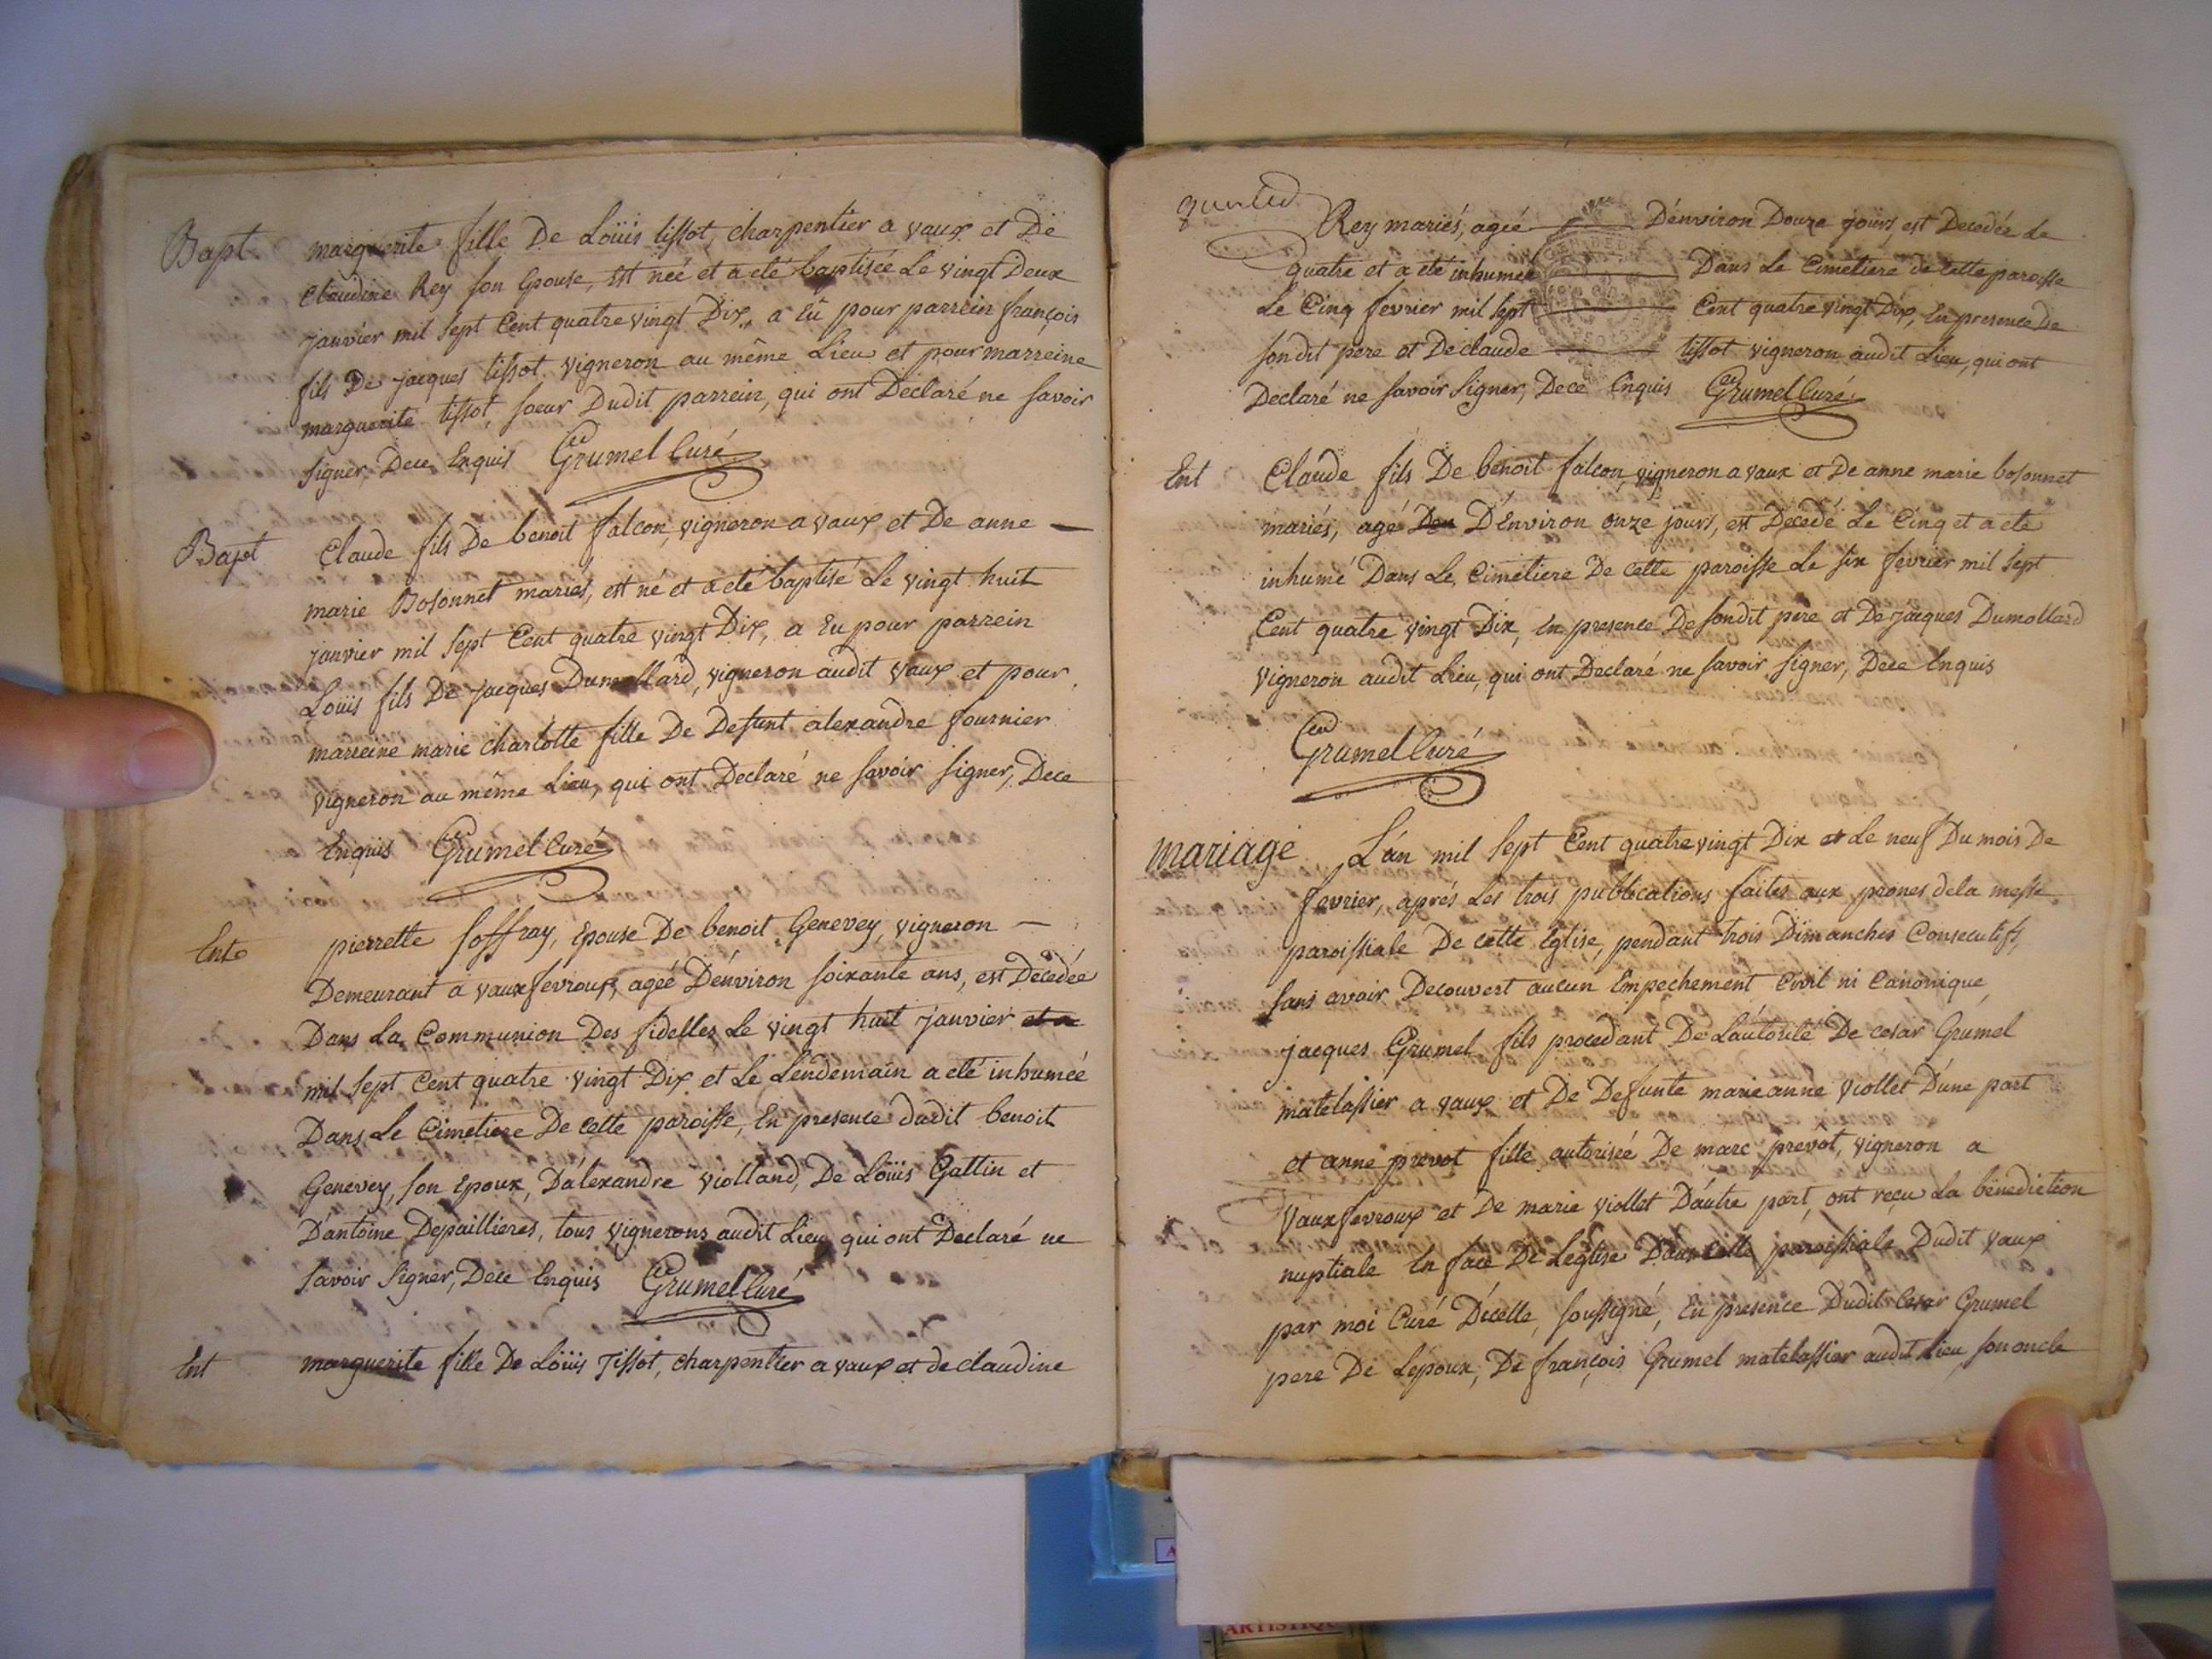 Bapt. marguerite fille De Loüis tissot, charpentier a vaux et De
Claudine Rey son Epouse, est née et a eté baptisée Le vingt Deux
janvier mil sept Cent quatre vingt Dix, a Eû pour parrein françois
fils De jacques tissot vigneron au même Lieu et pour marreine
marguerite tissot, soeur Dudit parrein, qui ont Declaré ne savoir
signer, Dece Enquis Grumel Curé
Bapt Claude fils De benoit falcon, vigneron a vaux et De anne
marie Bosonnet mariés, est né et a eté baptisé Le vingt huit
janvier mil sept Cent quatre vingt Dix, a Eu pour parrein
Loüis fils De jacques Dumollard, vigneron audit vaux et pour
marreine marie charlotte fille De Defunt alexandre fournier
vigneron au même Lieu, qui ont Declaré ne savoir signer, Dece
Enquis Grumel Curé
Ent. pierrette soffray, Epouse De benoit Genevey, vigneron
Demeurant a vauxfevroux, ageé D'environ soixante ans, est Decedée
Dans La Communion Des fidelles Le vingt huit janvier et a
mil sept Cent quatre vingt Dix et Le Lendemain a eté inhumeé
Dans Le Cimetiere De cette paroisse, En presence dudit benoit
Genevey, son Epoux, D'alexandre violland, De Loüis Gattin et
D'antoine Depaillieres, tous vignerons audit Lieu qui ont Declaré ne
savoir signer, Dece Enquis Grumel Curé
Ent marguerite fille De Loüis Tissot, charpentier a vaux et de claudine
Rey mariés, ageé D'environ Douze jours, est Decedée Le
quatre et a eté inhumée Dans Le Cimetiere de cette paroisse
Le Cinq fevrier mil sept Cent quatre vingt Dix, En presence De
sondit pere et De claude tissot vigneron audit Lieu, qui ont
Declaré ne savoir signer, Dece Enquis Grumel Curé
Ent Claude fils De benoit falcon, vigneron a vaux et De anne marie bosonnet
mariés, agé Den D'Environ onze jours, est Decedé Le Cinq et a eté
inhumé Dans Le Cimetiere De cette paroisse Le six fevrier mil sept
Cent quatre vingt Dix, En presence De sondit pere et De jacques Dumollard
vigneron audit Lieu, qui ont Declaré ne savoir signer, Dece Enquis
Grumel Curé
mariage L'an mil sept Cent quatre vingt Dix et Le neuf Du mois De
fevrier, aprés Les trois publications faites aux prones dela messe
paroissiale De cette Eglise, pendant trois Dimanches Consecutifs,
sans avoir Decouvert aucun Empechement Civil ni Canonique,
jacques Grumel fils procedant De L'autorité De cesar Grumel
matelassier a vaux et De Defunte marie anne viollet D'une part
et anne prevot fille autorisée De marc prevot, vigneron a
vauxfevroux et De marie viollet D'autre part, ont reçu La benediction
nuptiale En face De Leglise Dans cette paroissiale Dudit vaux
par moi Curé D'icelle, soussigné, En presence Dudit Cesar Grumel
pere De Lepoux, De françois Grumel matelassier audit Lieu, son oncle
ARTISTIQU